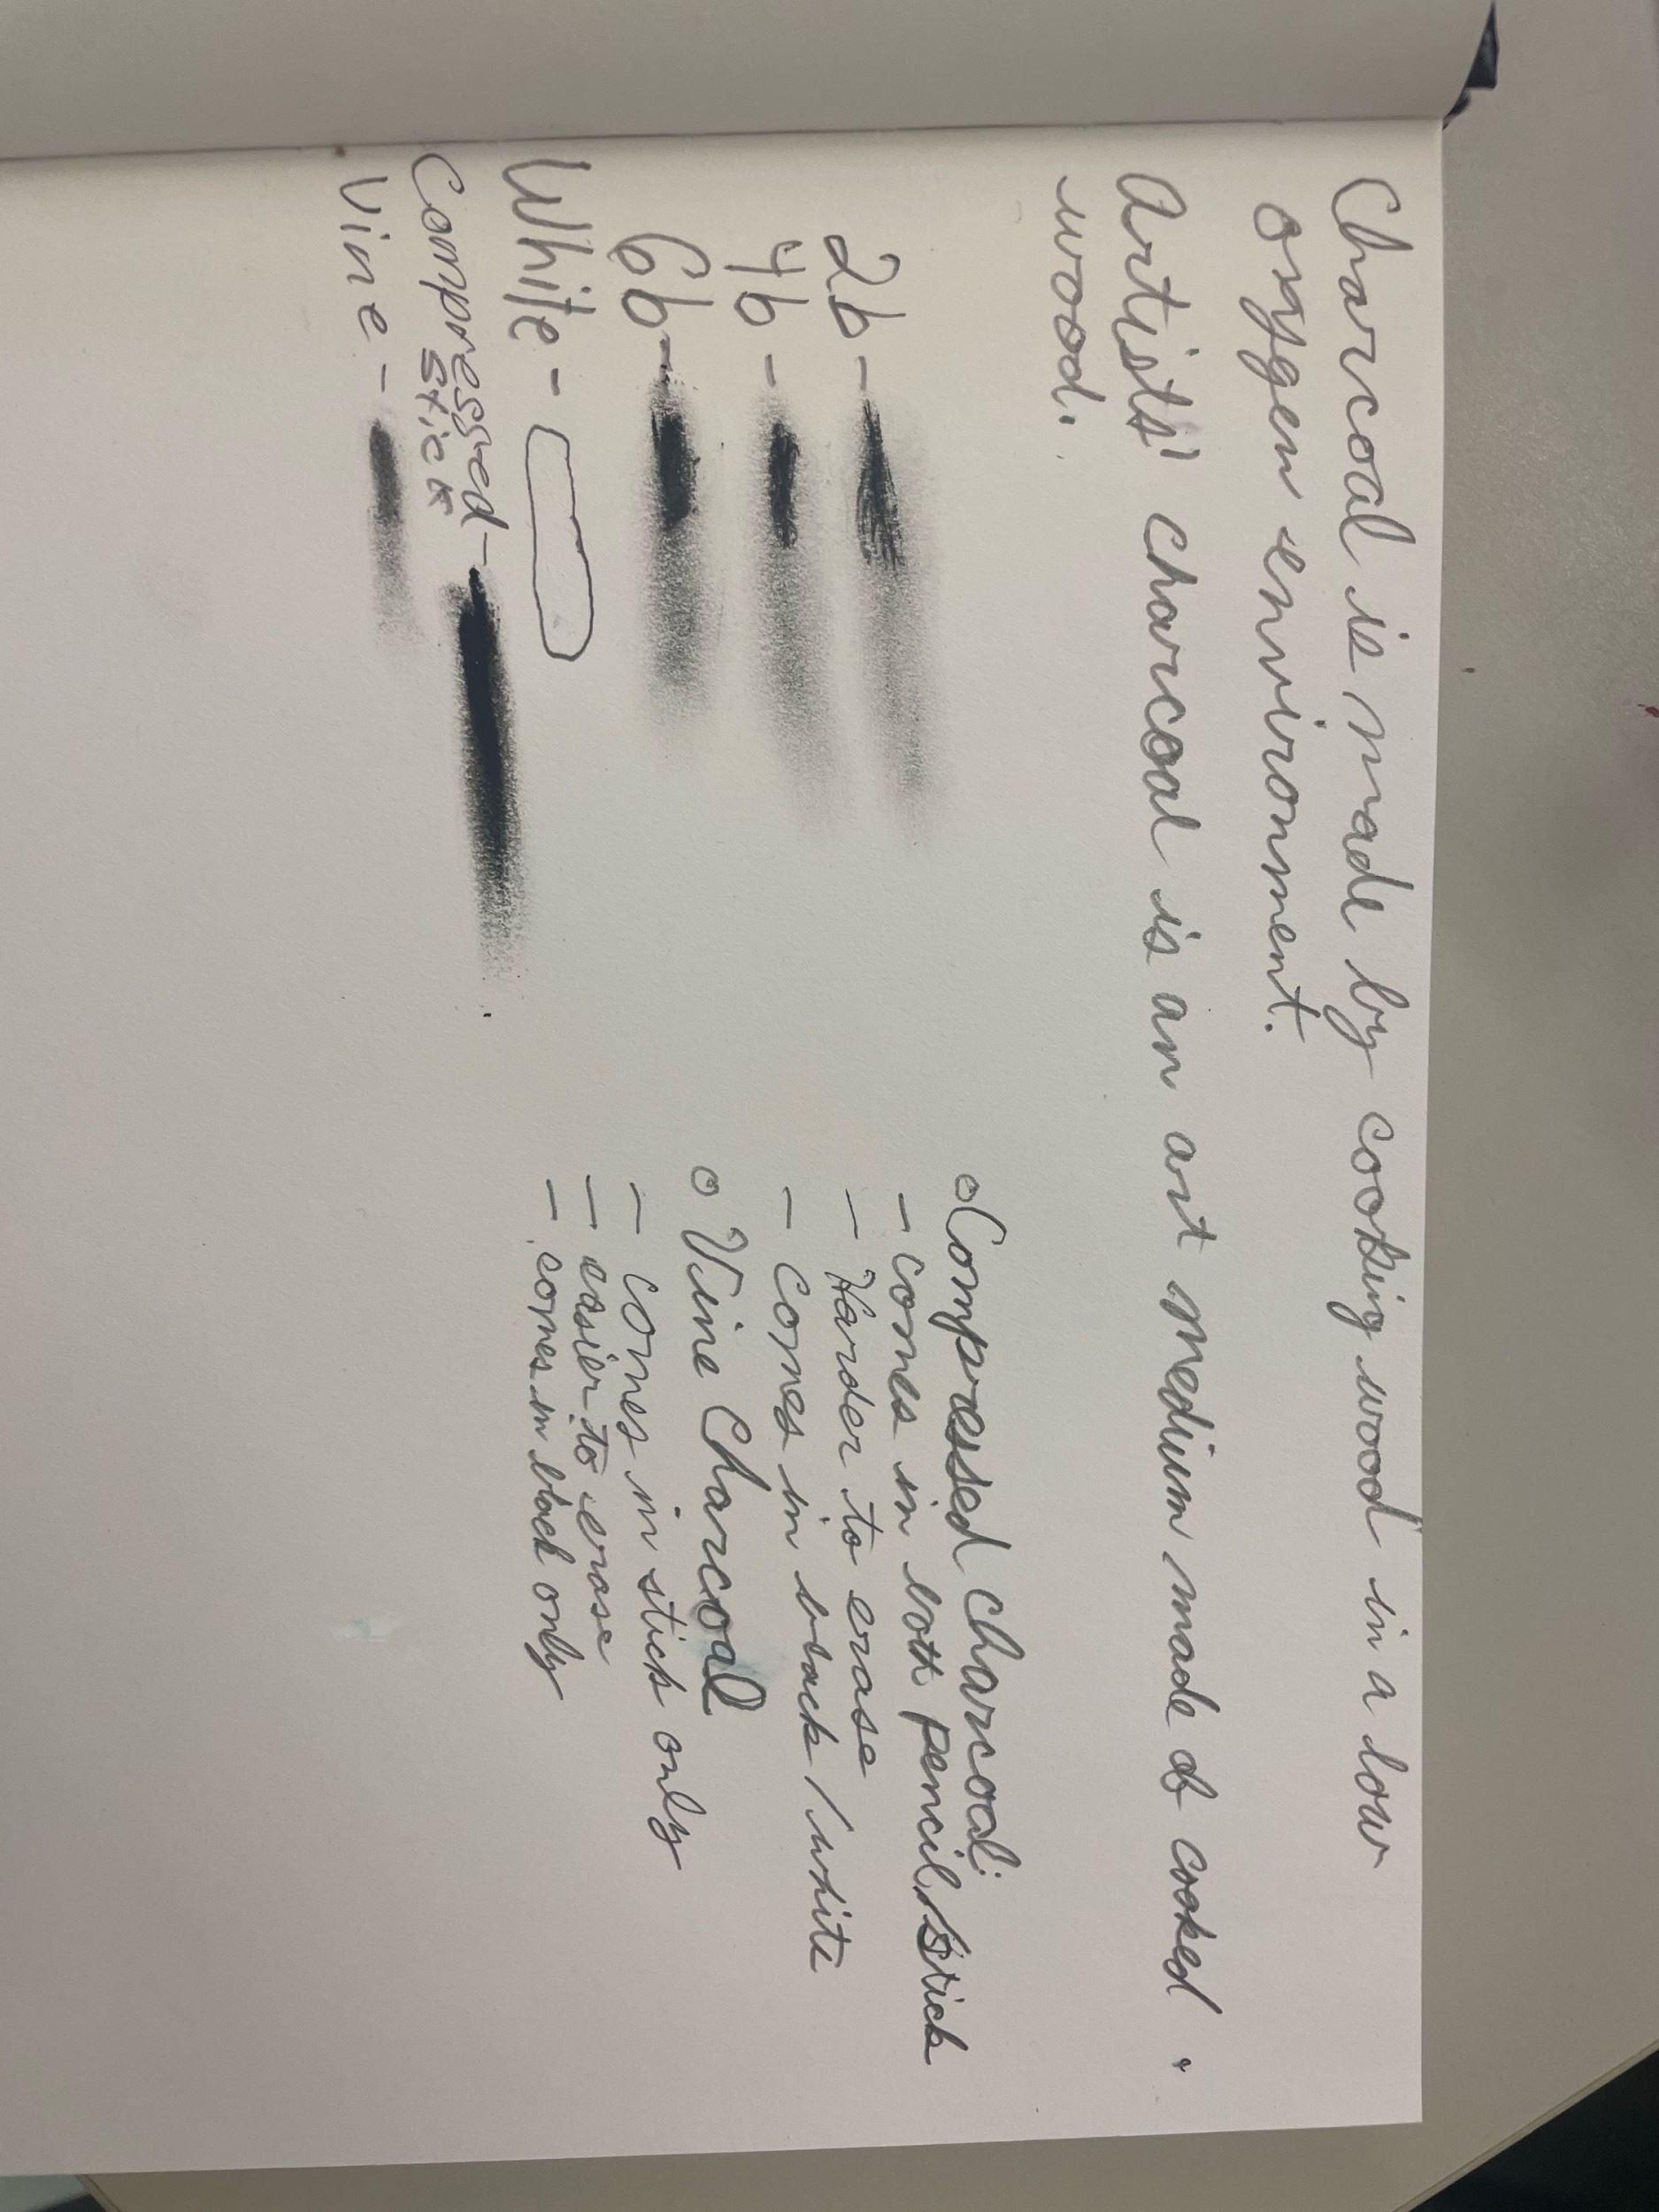 Charcoal is made by cooking wood in a low
oxygen environment.
Artists' charcoal is an art medium made of cooked
wood.
2b -
4b -
6b -
White -
Compressed -
stick
Vine -
o Compressed charcoal:
- comes in both pencil/stick
- Harder to erase
- Comes in black/white
o Vine Charcoal
- comes in stick only
- easier to erase
- comes in black only